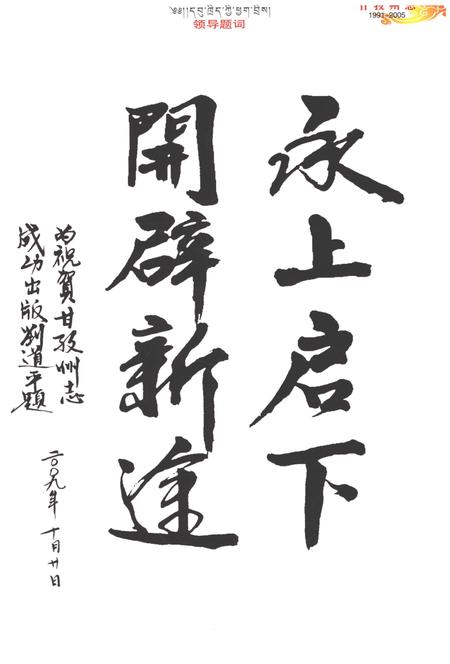 ༄༅།།དབུ་ཁྲིད་ཀྱི་ཕྱག་བྲིས།
领导题词
甘孜州志
1991-2005
承上启下
開辟新途
为祝賀甘孜州志
成功出版刘道平題
二〇〇九年十月廿日